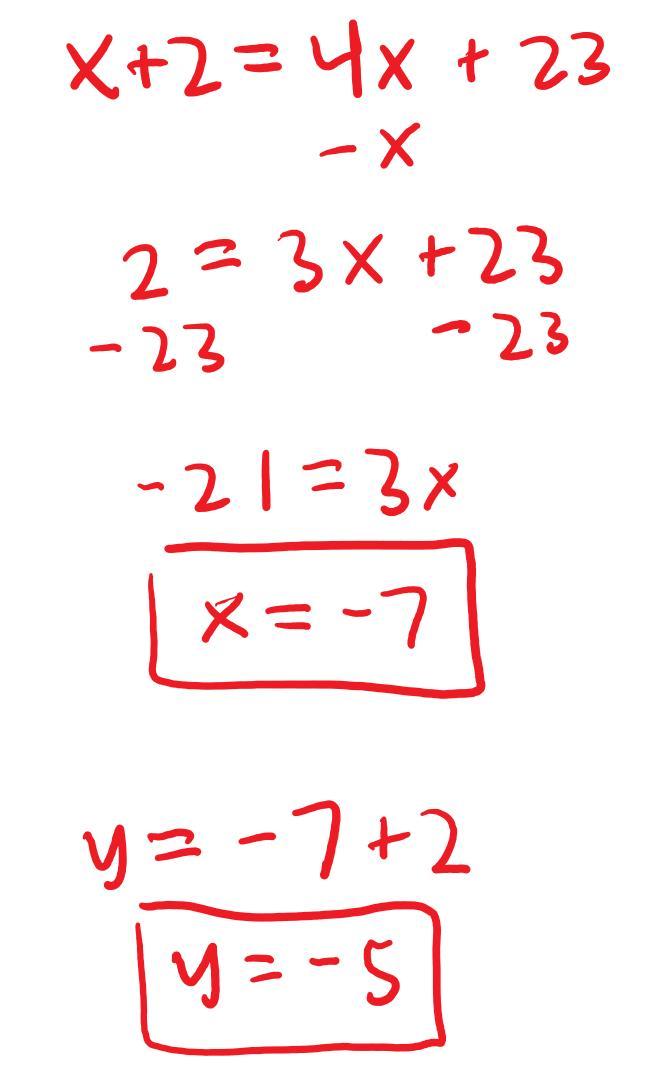 x+2=4x + 23
-x
2 = 3x +23
-23 -23
-21=3x
x=-7
y= -7+2
y=-5